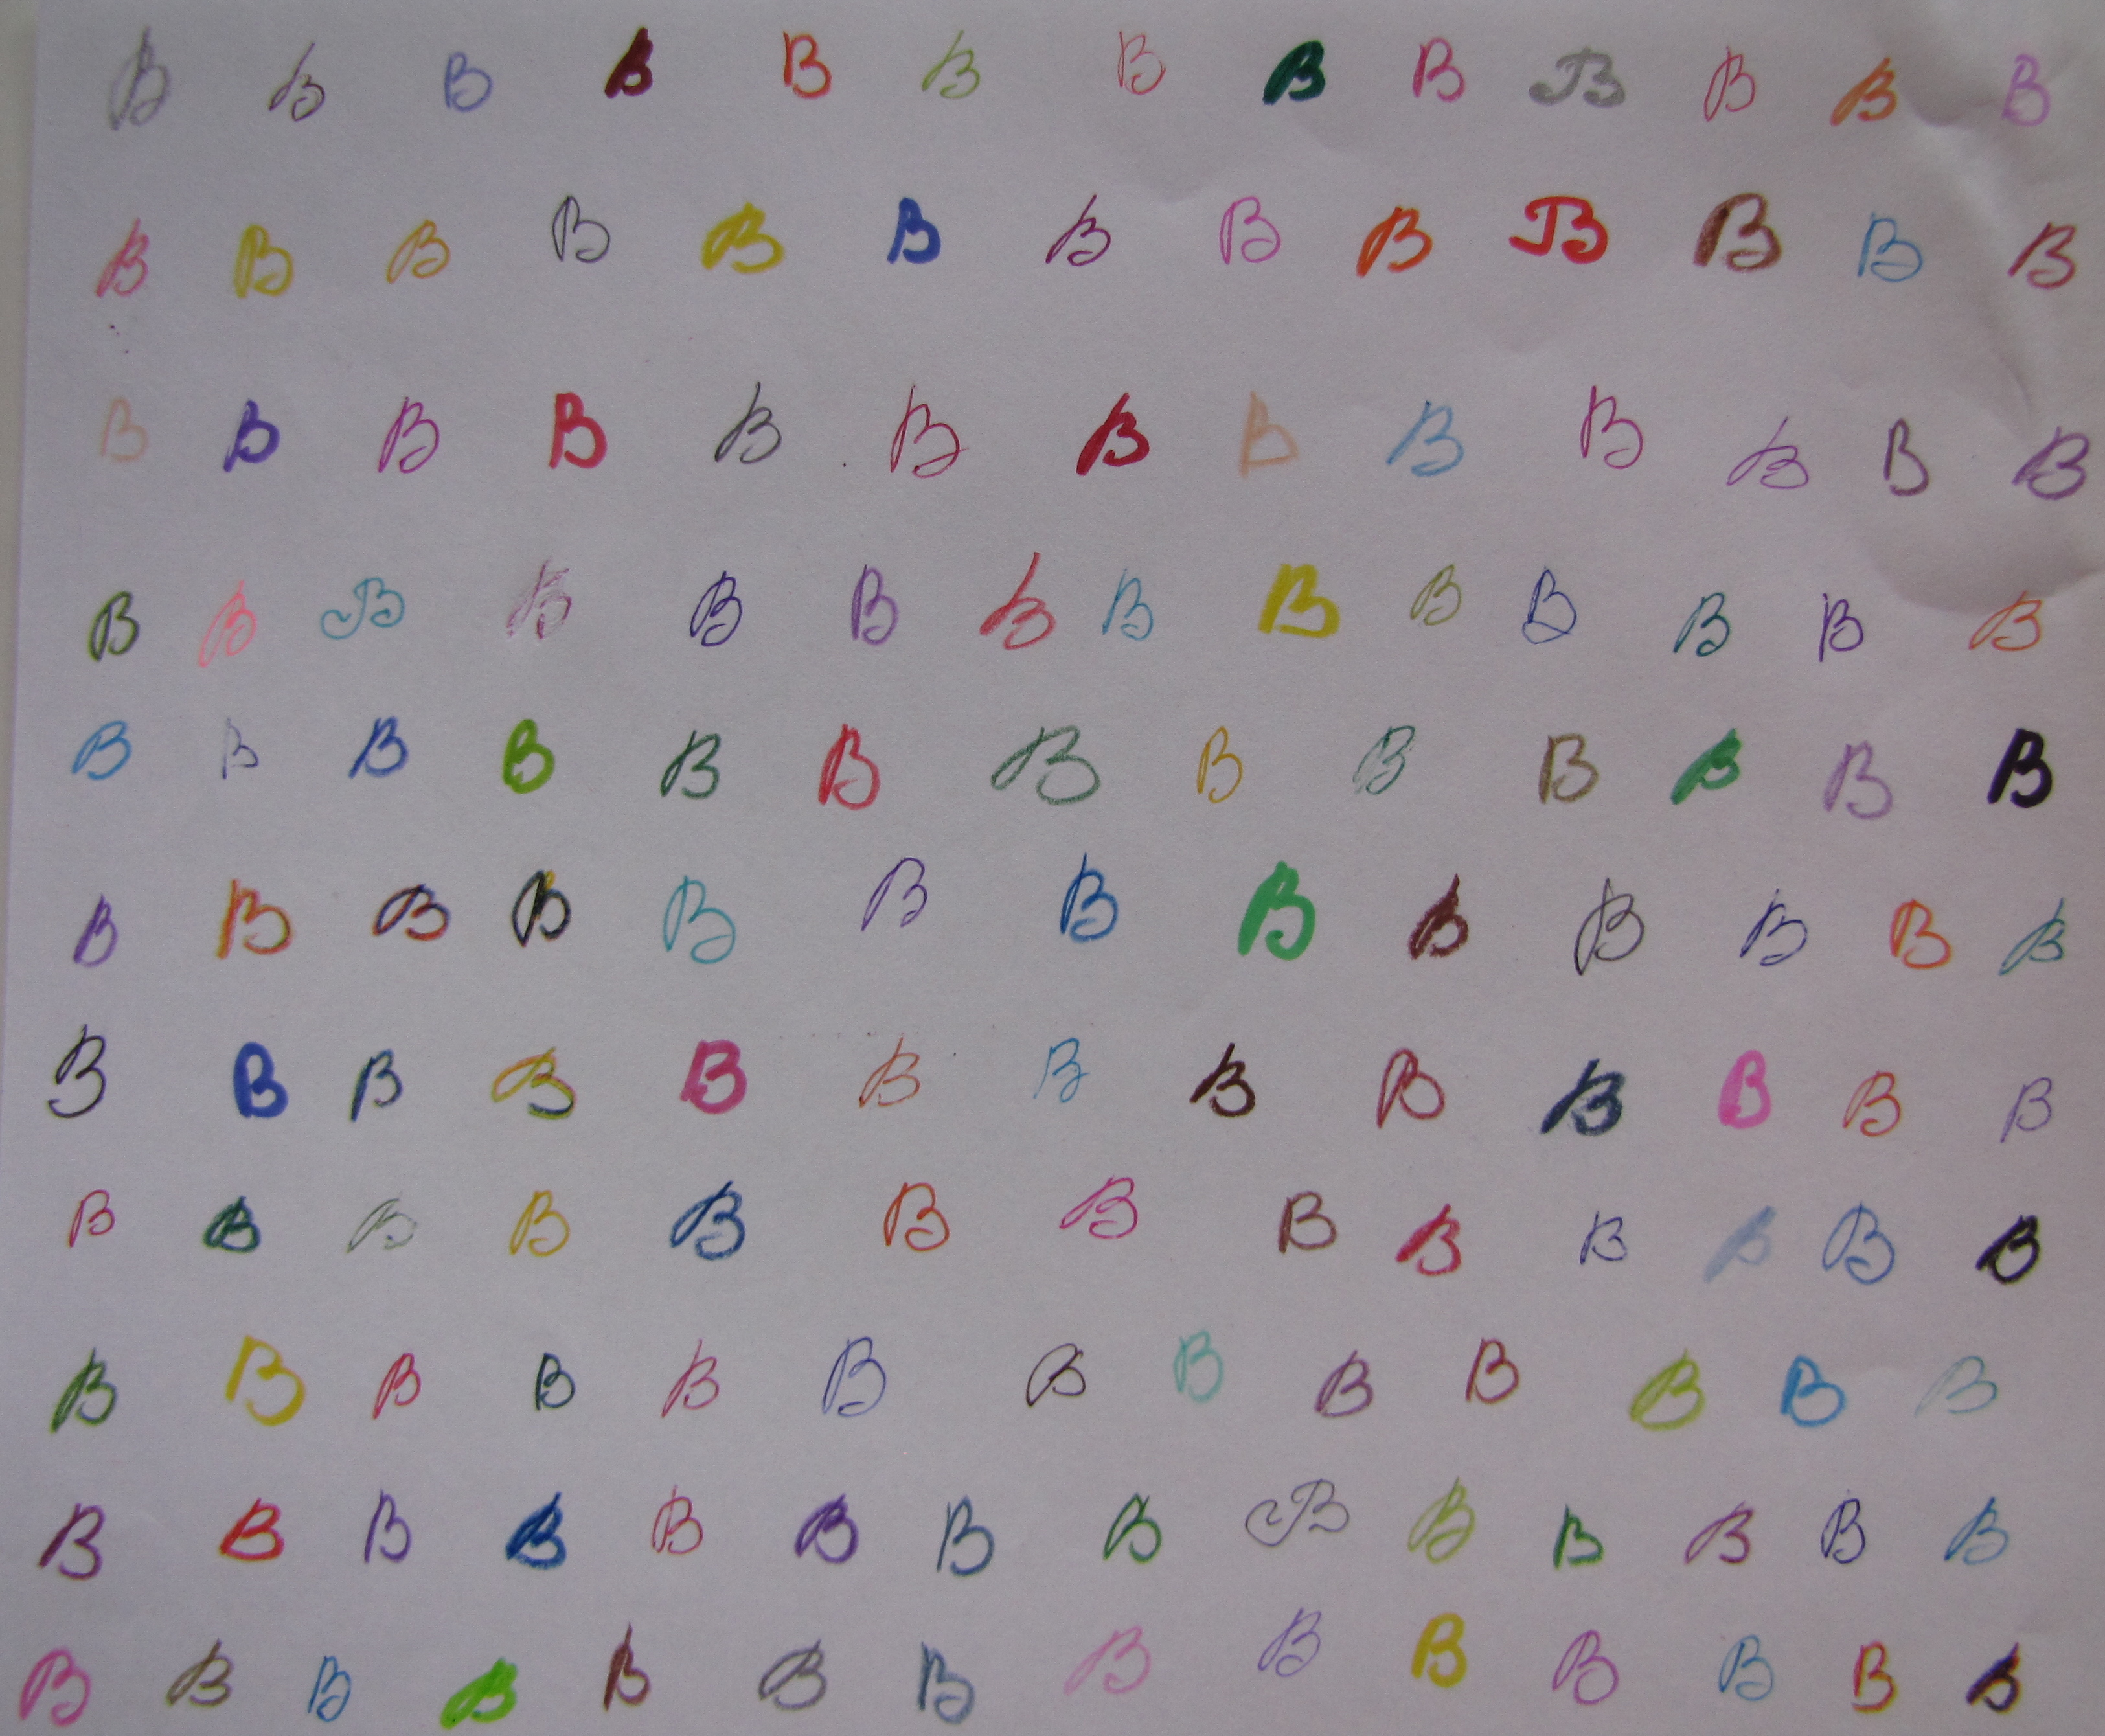 B B B B B B B B B B B B B
B B B B B B B B B B B B B
B B B B B B B B B B B B B
B B B B B B B B B B B B B B
B B B B B B B B B B B B B
B B B B B B B B B B B B B
B B B B B B B B B B B B B
B B B B B B B B B B B B B
B B B B B B B B B B B B B
B B B B B B B B B B B B B B
B B B B B B B B B B B B B B